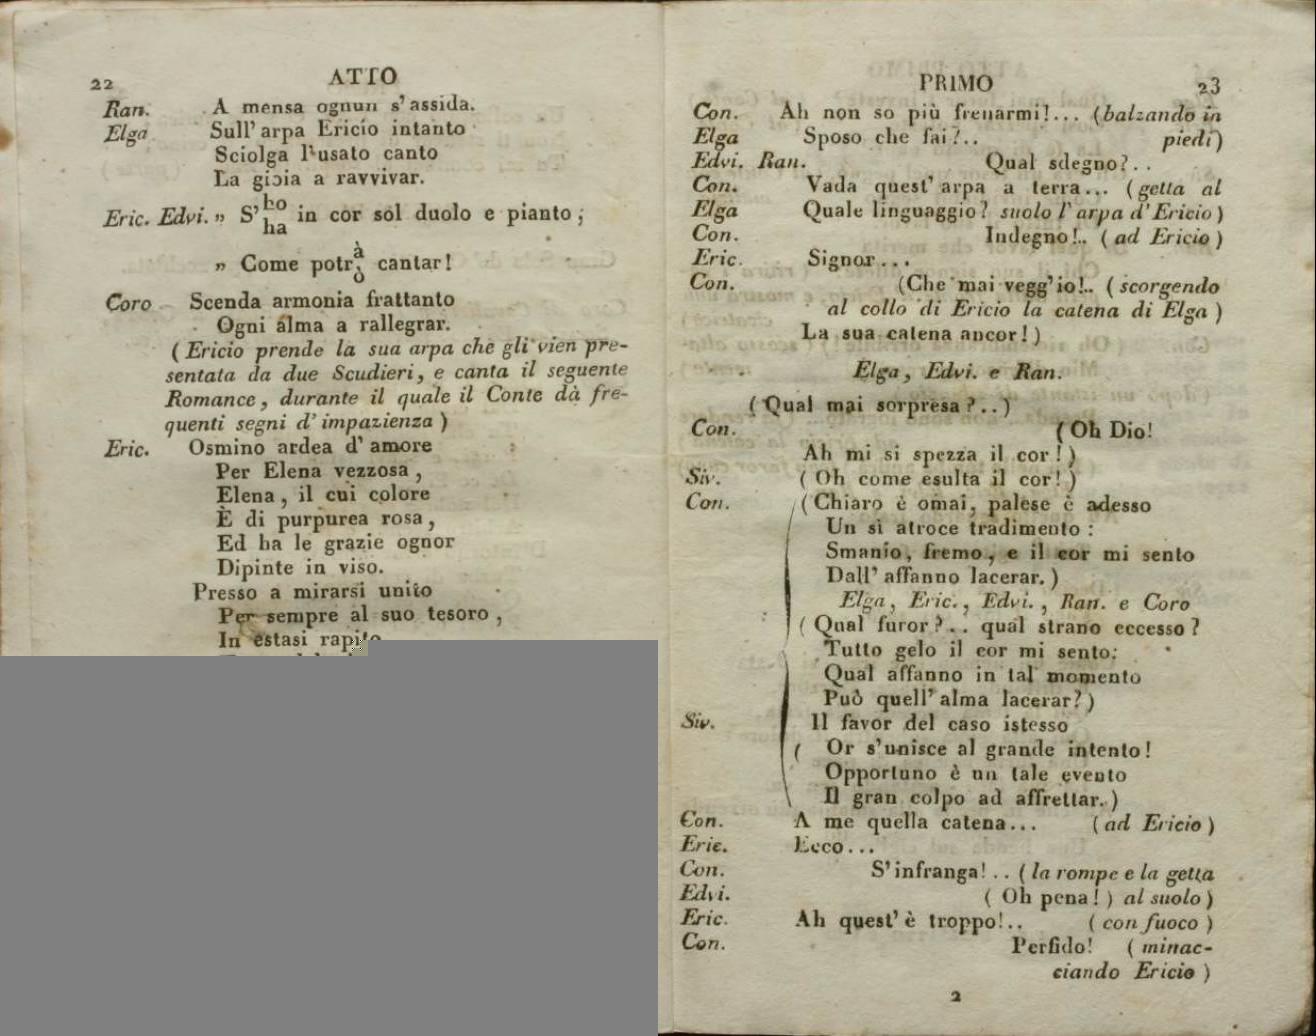 22 ATTO
Ran. A mensa ognun s'assida.
Elga Sull'arpa Ericio intanto
Sciolga l'usato canto
La gioia a ravvivar.
Eric. Edvi. „ S' ho ha in cor sol duolo e pianto,
„ Come potr à ò cantar!
Coro Scenda armonia frattanto
Ogni alma a rallegrar.
(Ericio prende la sua arpa che gli vien pre-
sentata da due Scudieri, e canta il seguente
Romance, durante il quale il Conte dà fre-
quenti segni d'impazienza)
Eric. Osmino ardea d'amore
Per Elena vezzosa,
Elena, il cui colore
È di purpurea rosa,
Ed ha le grazie ognor
Dipinte in viso.
Presso a mirarsi unito
Per sempre al suo tesoro,
In estasi rapito
PRIMO 23
Con. Ah non so più frenarmi!... (balzando in
Elga Sposo che fai?.. piedi)
Edvi. Ran. Qual sdegno?..
Con. Vada quest'arpa a terra... (getta al
Elga Quale linguaggio? suolo l'arpa d'Ericio)
Con. Indegno!.. (ad Ericio)
Eric. Signor...
Con. (Che mai vegg'io!.. (scorgendo
al collo di Ericio la catena di Elga)
La sua catena ancor!)
Elga, Edvi. e Ran.
(Qual mai sorpresa?..)
Con. (Oh Dio!
Ah mi si spezza il cor!)
Siv. (Oh come esulta il cor!)
Con. (Chiaro è omai, palese è adesso
Un sì atroce tradimento:
Smanio, fremo, e il cor mi sento
Dall'affanno lacerar.)
Elga, Eric., Edvi., Ran. e Coro
(Qual furor?.. qual strano eccesso?
Tutto gelo il cor mi sento:
Qual affanno in tal momento
Può quell'alma lacerar?)
Siv. Il favor del caso istesso
( Or s'unisce al grande intento!
Opportuno è un tale evento
Il gran colpo ad affrettar.)
Con. A me quella catena... (ad Ericio)
Eric. Ecco...
Con. S'infranga!.. (la rompe e la getta
Edvi. (Oh pena!) al suolo)
Eric. Ah quest'è troppo!.. (con fuoco)
Con. Perfido! (minac-
ciando Ericio)
2